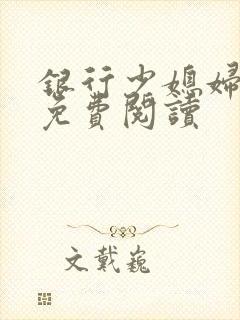 銀行少媳婦
免費閱讀
文戴巍